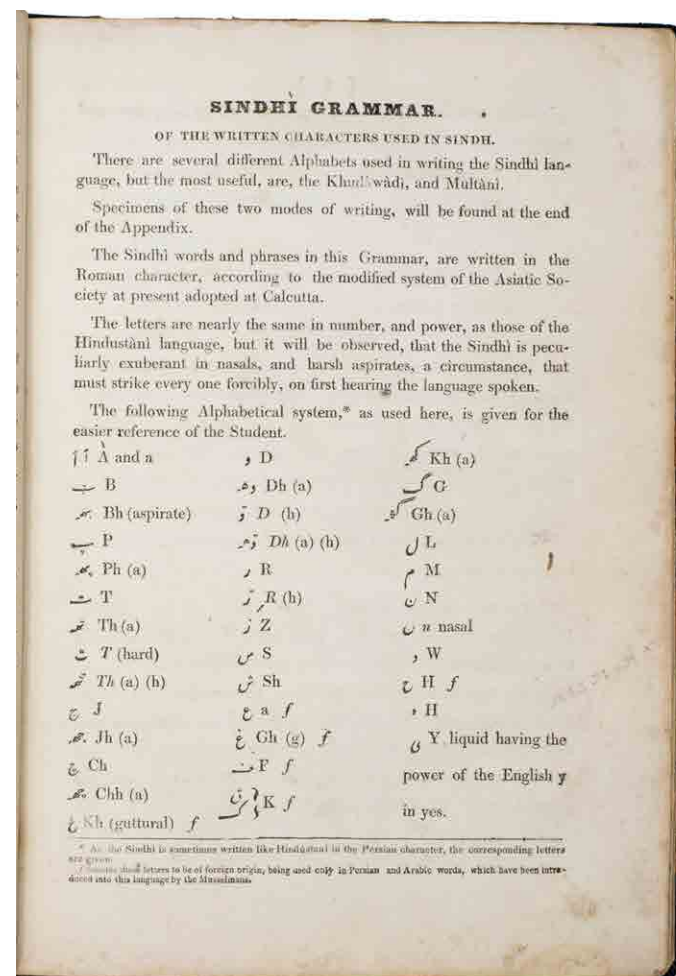 SINDHÌ GRAMMAR.
OF THE WRITTEN CHARACTERS USED IN SINDH.
There are several different Alphabets used in writing the Sindhì lan-
guage, but the most useful, are, the Khudàwàdì, and Multànì.
Specimens of these two modes of writing, will be found at the end
of the Appendix.
The Sindhì words and phrases in this Grammar, are written in the
Roman character, according to the modified system of the Asiatic So-
ciety at present adopted at Calcutta.
The letters are nearly the same in number, and power, as those of the
Hindustànì language, but it will be observed, that the Sindhì is pecu-
liarly exuberant in nasals, and harsh aspirates, a circumstance, that
must strike every one forcibly, on first hearing the language spoken.
The following Alphabetical system,* as used here, is given for the
easier reference of the Student.
ا آ À and a
ب B
بھ Bh (aspirate)
پ P
پھ Ph (a)
ت T
تھ Th (a)
ٹ T (hard)
ٹھ Th (a) (h)
ج J
جھ Jh (a)
چ Ch
چھ Chh (a)
خ Kh (guttural) f
د D
دھ Dh (a)
ڈ D (h)
ڈھ Dh (a) (h)
ر R
R (h)
ز Z
س S
ش Sh
ع a f
غ Gh (g) f
ف F f
ق ک } K f
کھ Kh (a)
گ G
گھ Gh (a)
ل L
م M
ن N
ن n nasal
و W
ح H f
ه H
ی Y liquid having the
power of the English y
in yes.
* As the Sindhì is sometimes written like Hindústànì in the Persian character, the corresponding letters
are given.
f letters to be of foreign origin, being used only in Persian and Arabic words, which have been intro-
duced into this language by the Mussulmans.